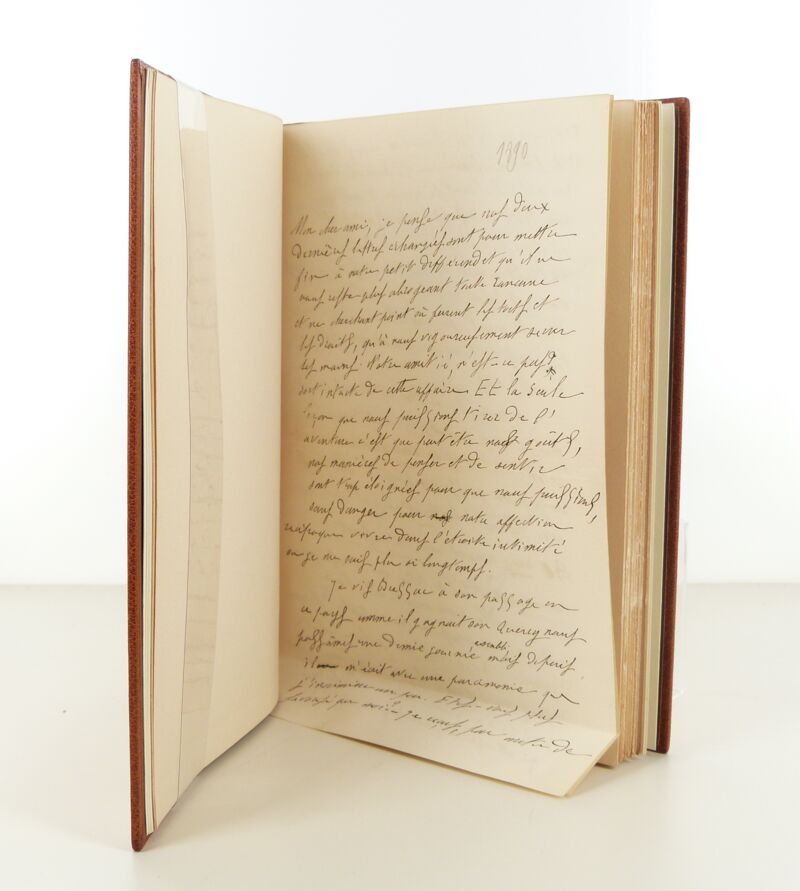 1890
Mon cher ami, je pense que nos deux
dernières lettres échangées sont pour mettre
fin à notre petit différend et qu'il ne
nous reste plus abrogeant toute rancune
et ne cherchant point où furent les torts et
les droits, qu'à nous vigoureusement serrer
les mains. Notre amitié, n'est-ce pas?
sort intacte de cette affaire. Et la seule
leçon que nous puissions tirer de l'
aventure c'est que peut être nos goûts,
nos manières de penser et de sentir
sont trop éloignées pour que nous puissions,
sans danger pour notre affection
vivre dans l'étroite intimité
où je me suis plu si longtemps.
Je vis à son passage en
ce pays comme il gagnait son Quercy nous
passâmes une demie journée ensemble mais depuis
il m'écrit avec une parcimonie qui
un peu.